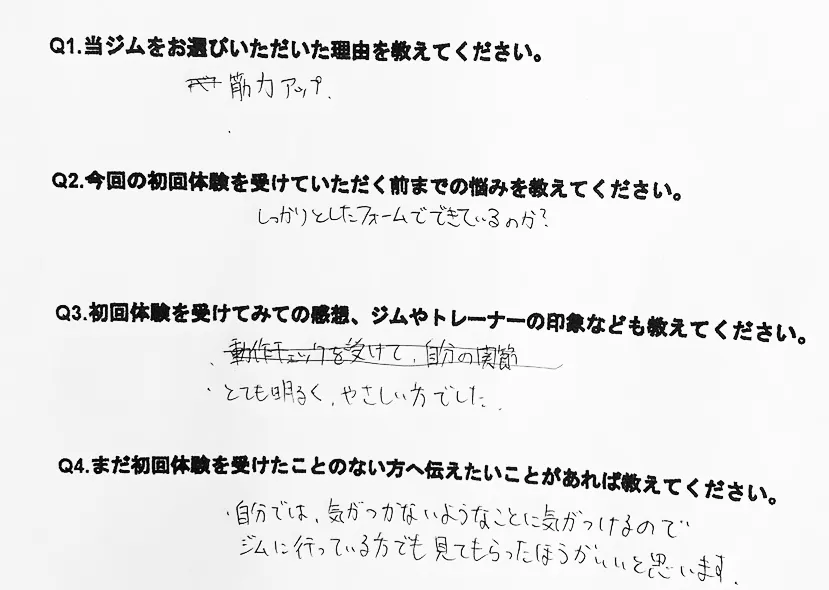 Q1.当ジムをお選びいただいた理由を教えてください。
筋力アップ.
Q2.今回の初回体験を受けていただく前までの悩みを教えてください。
しっかりとしたフォームでできているのか?
Q3.初回体験を受けてみての感想、ジムやトレーナーの印象なども教えてください。
・動作チェックを受けて、自分の関節
・とても明るく、やさしい方でした.
Q4.まだ初回体験を受けたことのない方へ伝えたいことがあれば教えてください。
・自分では、気がつかないようなことに気がつけるので
ジムに行っている方でも見てもらったほうがいいと思います.